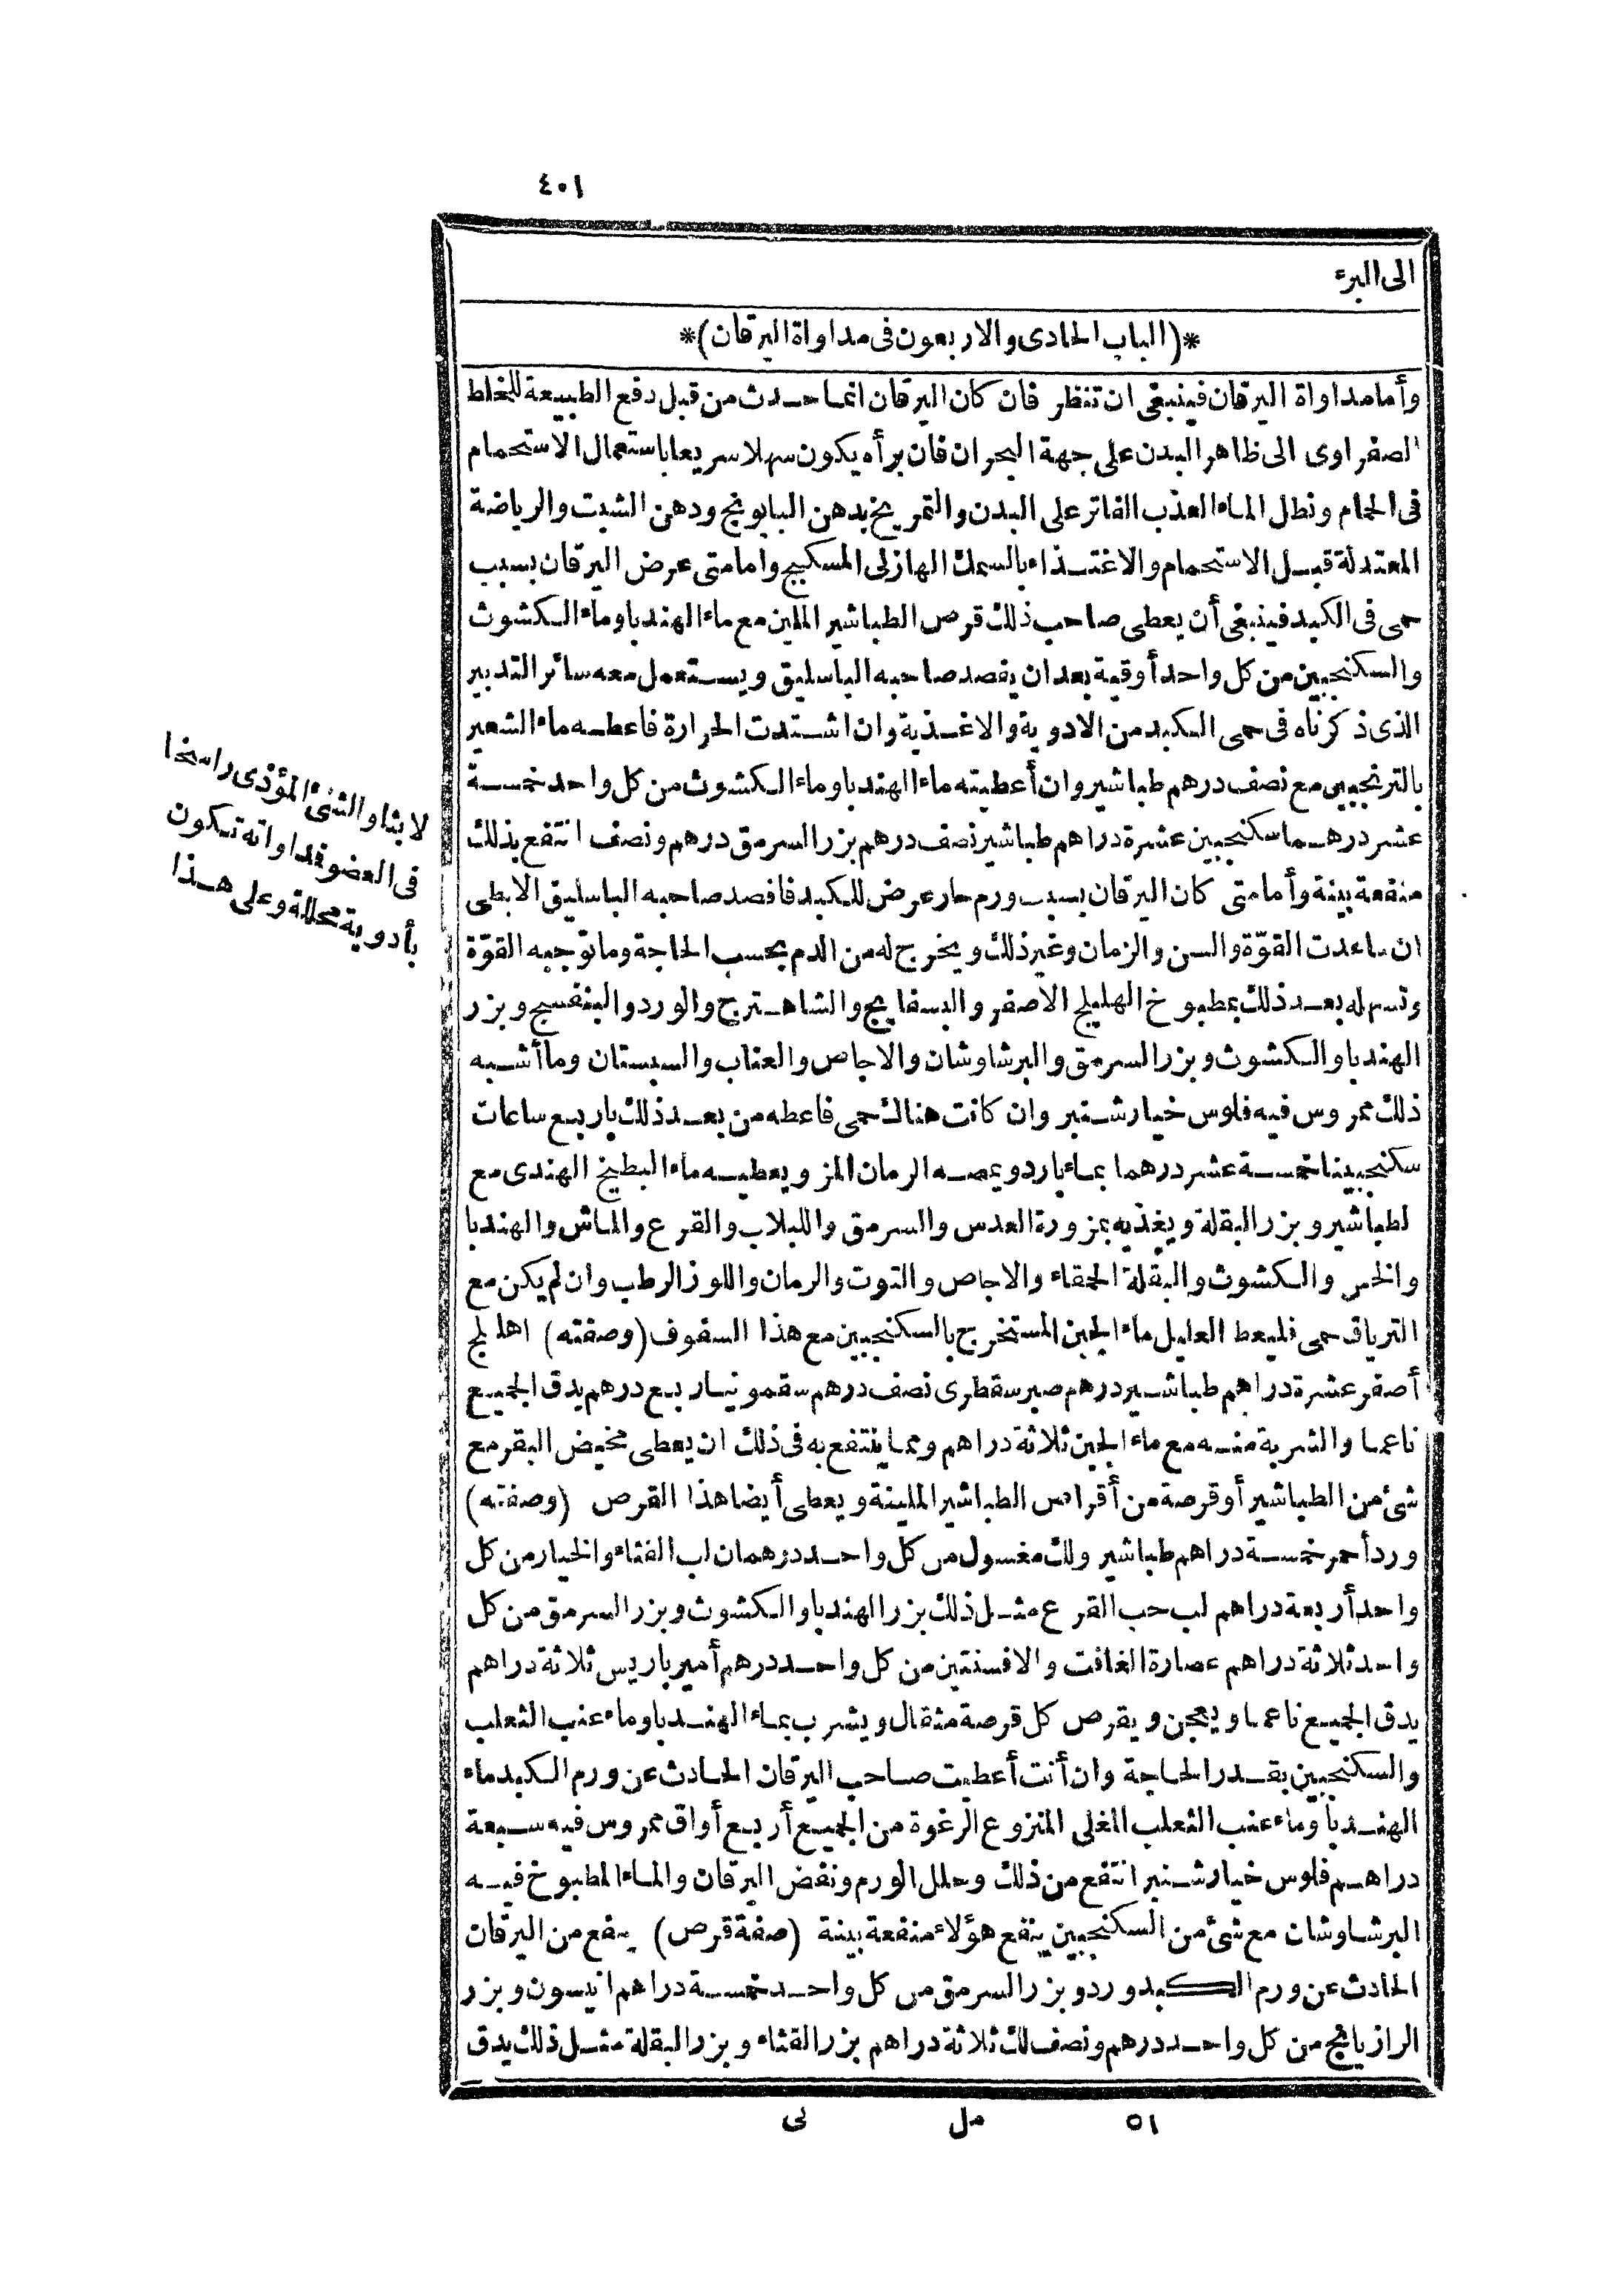 ٤٠١
الى البرء
*(الباب الحادى والاربعون فى مداواة اليرقان)*
وأما مداواة اليرقان فينبغى ان تنظر فان كان اليرقان انما حدث من قبل دفع الطبيعة للخلط
الصفراوى الى ظاهر البدن على جهة البحران فان برأه يكون سهلا سريعا باستعمال الاستحمام
فى الحمام ونطل الماء العذب الفاتر على البدن والتمريخ بدهن البابونج ودهن الشبت والرياضة
المعتدلة قبل الاستحمام والاغتذاء بالسمك الهازلى المسكبج وامامتى عرض اليرقان بسبب
حمى فى الكبد فينبغى أن يعطى صاحب ذلك قرص الطباشير الملين مع ماء الهندبا وماء الكشوث
والسكنجبين من كل واحد أوقية بعد ان يفصد صاحبه الباسليق ويستعمل معه سائر التدبير
الذى ذكرناه فى حمى الكبد من الادوية والاغذية وان اشتدت الحرارة فاعطه ماء الشعير
بالترنجبين مع نصف درهم طباشير وان أعطيته ماء الهندبا وماء الكشوث من كل واحد خمسة
عشر درهما سكنجبين عشرة دراهم طباشير نصف درهم بزر السرمق درهم ونصف انتفع بذلك
منفعة بينة وأما متى كان اليرقان بسبب ورم حار عرض للكبد فافصد صاحبه الباسليق الابطى
ان ساعدت القوّة والسن والزمان وغير ذلك ويخرج له من الدم بحسب الحاجة وما توجبه القوّة
وتسهله بعد ذلك بمطبوخ الهليلج الاصفر والبسفايج والشاهترج والورد والبنفسج وبزر
الهندبا والكشوث وبزر السرمق والبرشاوشان والاجاص والعناب والسبستان وما أشبه
ذلك ممروس فيه فلوس خيارشنبر وان كانت هناك حمى فاعطه من بعد ذلك باربع ساعات
سكنجبينا خمسة عشر درهما بماء بارد ويمصه الرمان المز ويعطيه ماء البطيخ الهندى مع
لطباشير وبزر البقلة ويغذيه بمزورة العدس والسرمق واللبلاب والقرع والماش والهندبا
والخس والكشوث والبقلة الحمقاء والاجاص والتوت والرمان واللوز الرطب وان لم يكن مع
الترياق حمى فليعط العليل ماء الجبن المستخرج بالسكنجبين مع هذا السفوف (وصفته) اهليلج
أصفر عشرة دراهم طباشير درهم صبر سقطرى نصف درهم سقمونيا ربع درهم يدق الجميع
ناعما والشربة منه مع ماء الجبن ثلاثة دراهم ومما ينتفع به فى ذلك ان يعطى مخيض البقر مع
شئ من الطباشير أو قرصة من أقراص الطباشير الملينة ويعطى أيضا هذا القرص (وصفته)
ورد أحمر خمسة دراهم طباشير ولك مغسول من كل واحد درهمان لب القثاء والخيار من كل
واحد أربعة دراهم لب حب القرع مثل ذلك بزر الهندبا والكشوث وبزر السرمق من كل
واحد ثلاثة دراهم عصارة الغافت والافسنتين من كل واحد درهم أميرباريس ثلاثة دراهم
يدق الجميع ناعما ويعجن ويقرص كل قرصة مثقال ويشرب بماء الهندبا وماء عنب الثعلب
والسكنجبين بقدر الحاجة وان أنت أعطيت صاحب اليرقان الحادث عن ورم الكبد ماء
الهندبا وماء عنب الثعلب المغلى المنزوع الرغوة من الجميع أربع أواق ممروس فيه سبعة
دراهم فلوس خيارشنبر انتفع من ذلك وحلل الورم ونفض اليرقان والماء المطبوخ فيه
البرشاوشان مع شئ من السكنجبين ينفع هؤلاء منفعة بينة (صفة قرص) ينفع من اليرقان
الحادث عن ورم الكبد ورد وبزر السرمق من كل واحد خمسة دراهم انيسون وبزر
الرازيانج من كل واحد درهم ونصف لك ثلاثة دراهم بزر القثاء وبزر البقلة مثل ذلك يدق
٥١ مل لى
لابثا والشئ المؤذى راسخا
فى العضو فداواته تكون
بأدوية محللة وعلى هذا